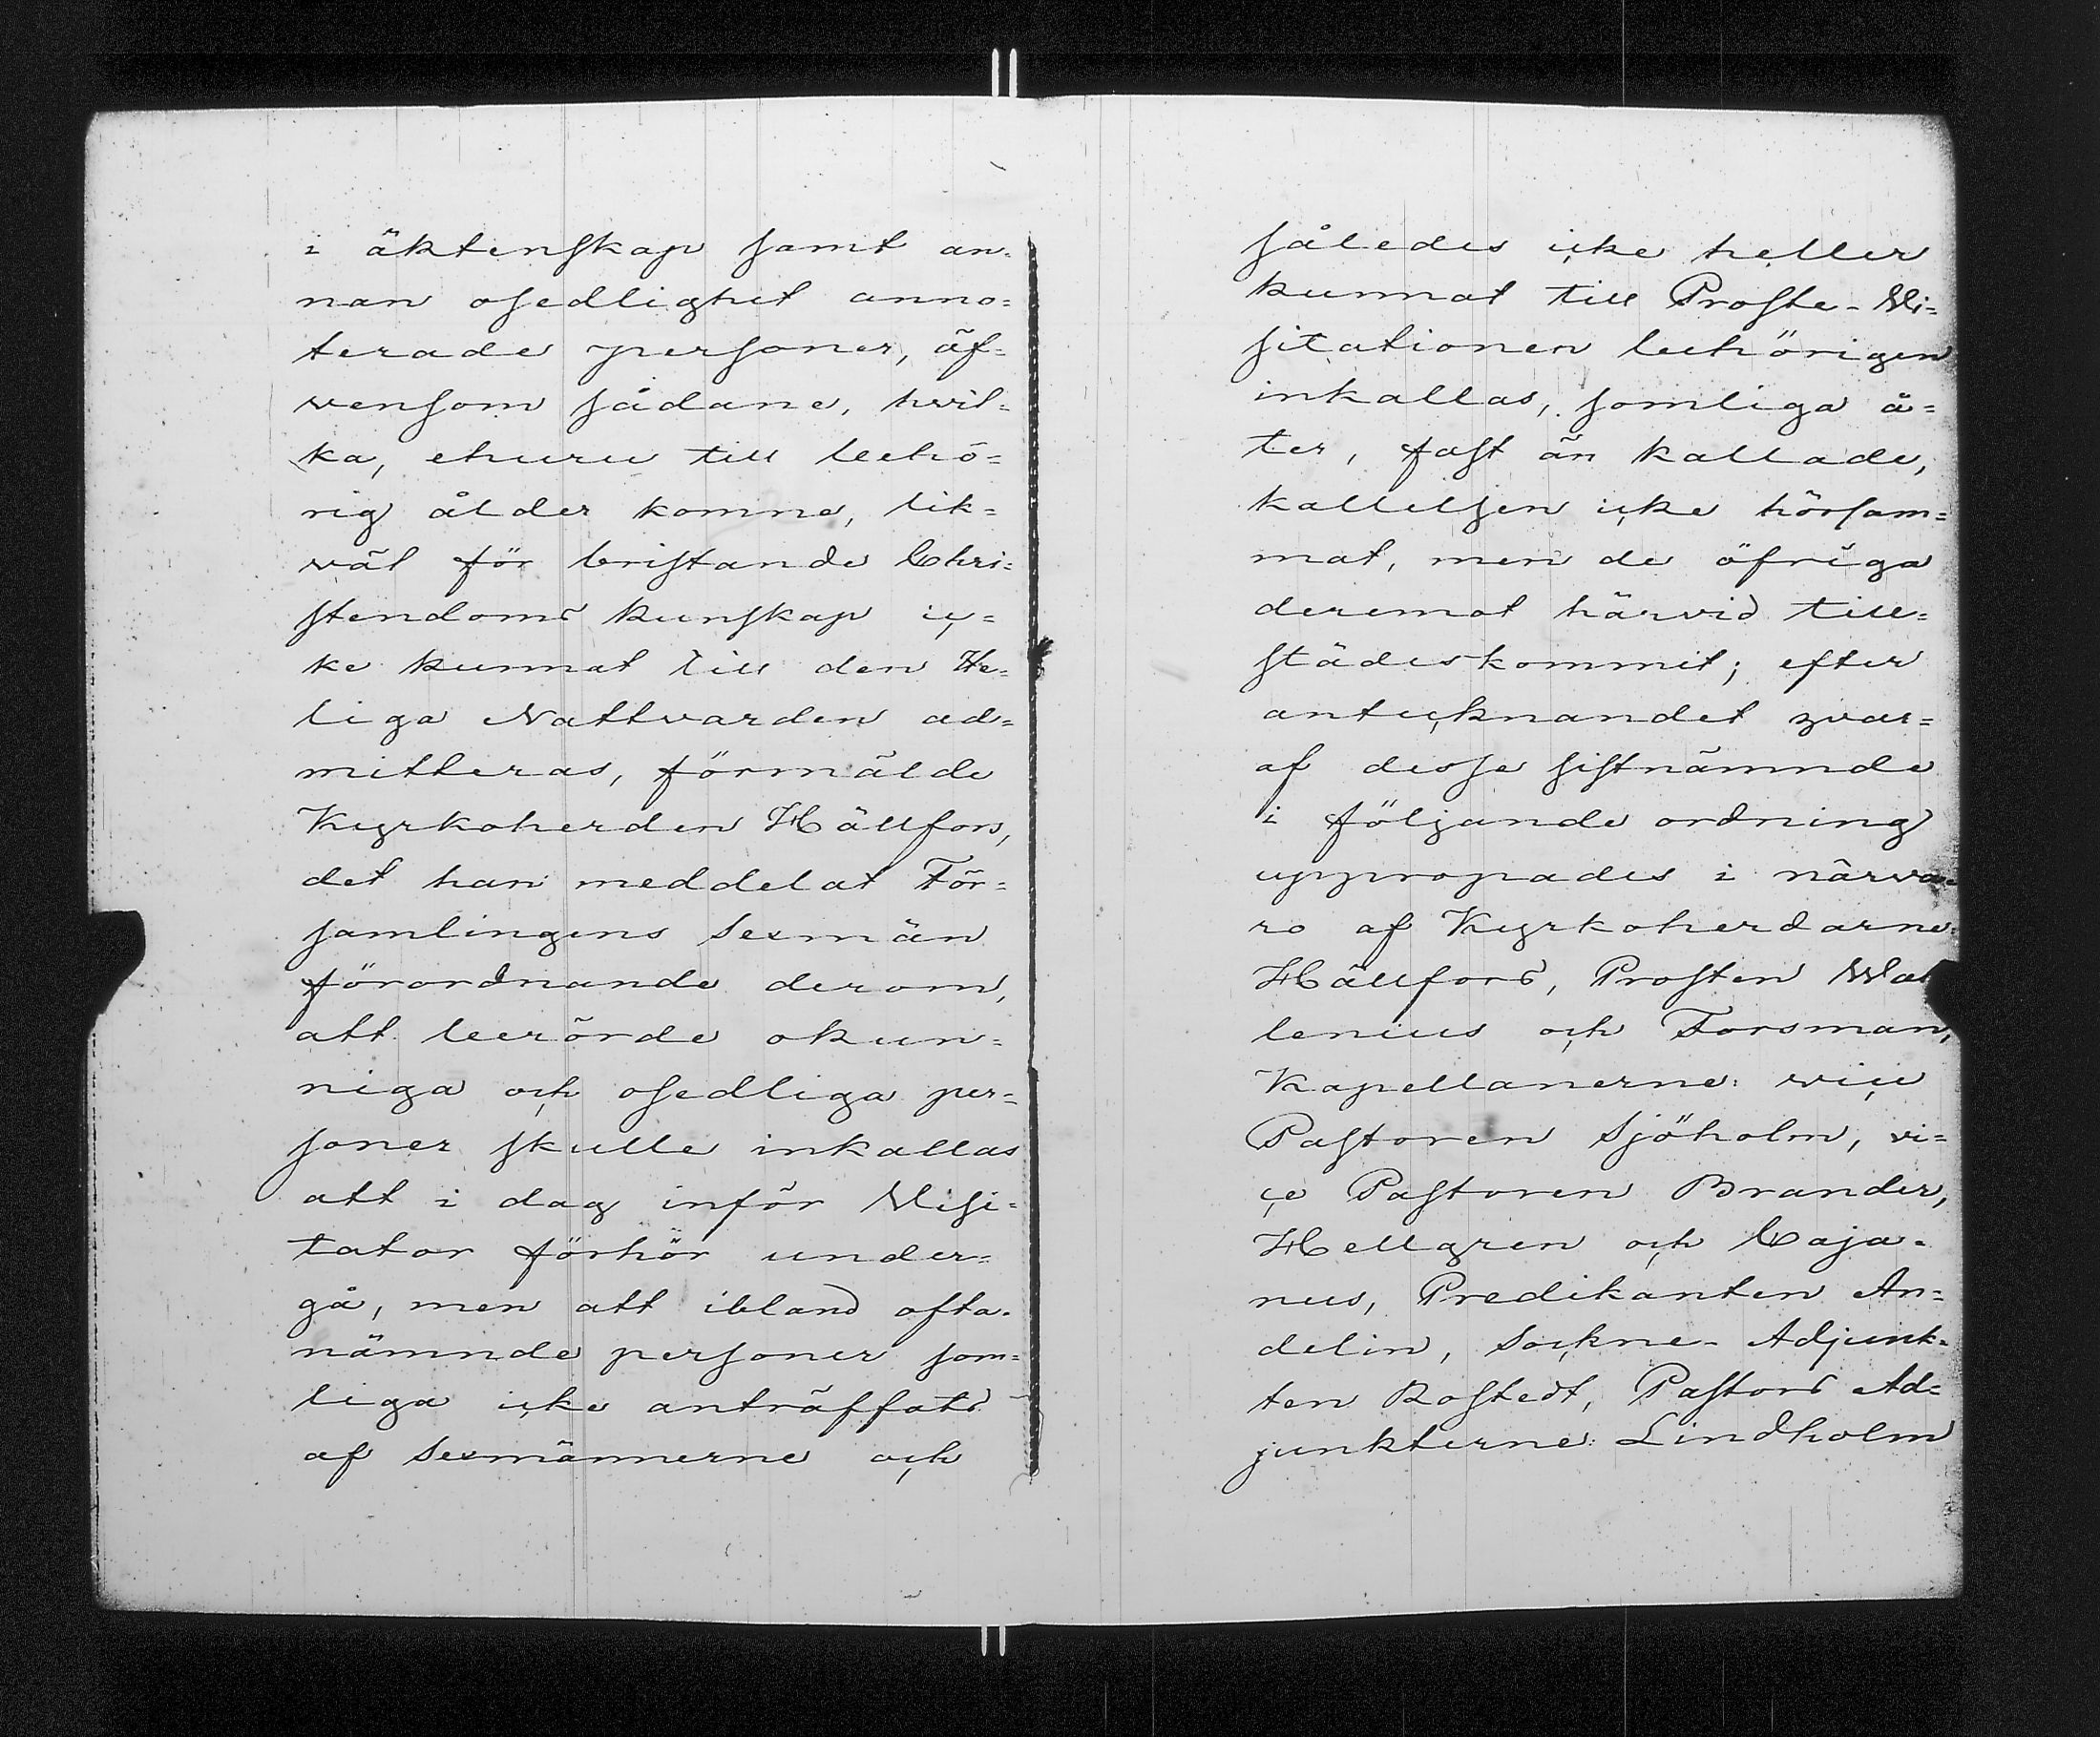 i äktenskap samt an=
nan osedlighet anno=
terade personer, äf=
vensom sådane, hvil=
ka, ehuru till behö=
rig ålder komne, lik=
väl för bristande Chri=
stendoms kunskap ic=
ke kunnat till den He=
liga Nattvarden ad=
mitteras, förmälde
Kyrkoherden Hällfors,
det han meddelat För=
samlingens Sexmän
förordnande derom,
att berörde okun=
niga och osedliga per=
soner skulle inkallas
att i dag inför Visi=
tator förhör under=
gå, men att ibland ofta=
nämnde personer som=
liga icke anträffats
af Sexmännerne och
således icke heller
kunnat till Proste-Vi=
sitationen behörigen
inkallas, somliga å=
ter, fast än kallade,
kallelsen icke hörsam=
mat, men de öfriga
deremot härvid till=
städeskommit; efter
antecknandet hvar=
af desse sistnämnde
i följande ordning
uppropades i närva=
ro af Kyrkoherdarne:
Hällfors, Prosten Wal
lenius och Forsman,
Kapellanerne: vice
Pastoren Sjöholm, vi=
ce Pastoren Brander,
Hellgren och Caja=
nus, Predikanten An=
delin, Sockne-Adjunk=
ten Bostedt, Pastors Ad=
junkterne: Lindholm